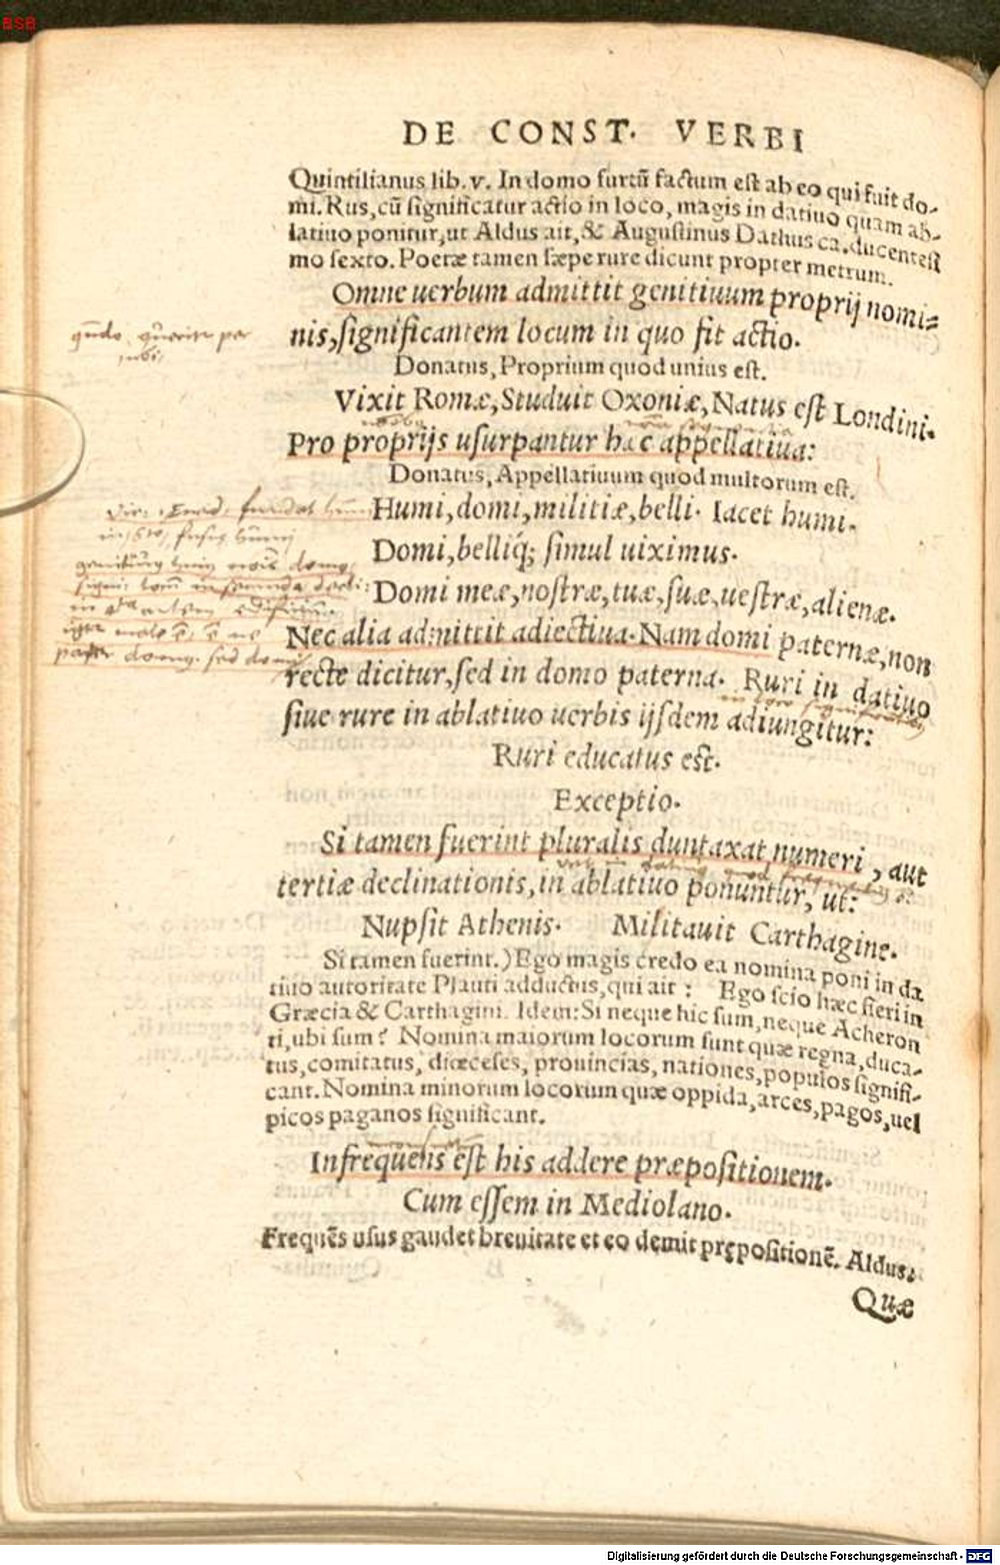 BSB
DE CONST. VERBI
Quintilianus lib. v. In domo furtū factum est ab eo qui fuit do-
mi. Rus, cū significatur actio in loco, magis in datiuo quam ab-
latiuo ponitur, ut Aldus ait, & Augustinus Dathus ca. ducentesi
mo sexto. Poetæ tamen sæpe rure dicunt propter metrum.
Omne uerbum admittit genitiuum proprij nomi=
nis, significantem locum in quo fit actio.
Donatus, Proprium quod unius est.
Vixit Romæ, Studuit Oxoniæ, Natus est Londini.
Pro proprijs usurpantur hæc appellatiua:
Donatus, Appellatiuum quod multorum est.
Humi, domi, militiæ, belli. Iacet humi.
Domi, belliq́; simul uiximus.
Domi meæ, nostræ, tuæ, suæ, uestræ, alienæ.
Nec alia admittit adiectiua. Nam domi paternæ, non
recte dicitur, sed in domo paterna. Ruri in datiuo
siue rure in ablatiuo uerbis ijsdem adiungitur:
Ruri educatus est.
Exceptio.
Si tamen fuerint pluralis duntaxat numeri, aut
tertiæ declinationis, in ablatiuo ponuntur, ut:
Nupsit Athenis. Militauit Carthagine.
Si tamen fuerint.) Ego magis credo ea nomina poni in da
tiuo autoritate Plauti adductus, qui ait: Ego scio hæc fieri in
Græcia & Carthagini. Idem: Si neque hic sum, neque Acheron
ti, ubi sum? Nomina maiorum locorum sunt quæ regna, duca-
tus, comitatus, diœceses, prouincias, nationes, populos signifi-
cant. Nomina minorum locorum quæ oppida, arces, pagos, uel
picos paganos significant.
Infrequens est his addere præpositionem.
Cum essem in Mediolano.
Frequēs usus gaudet breuitate et eo demit prępositionē. Aldus.
Quæ
Digitalisierung gefördert durch die Deutsche Forschungsgemeinschaft - DFG